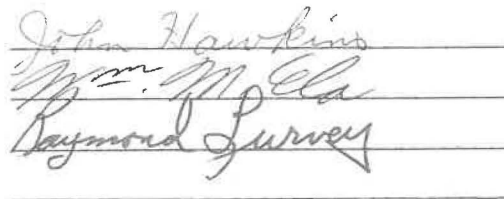 John Hawkins
Wm. M Ela
Raymond Purvey